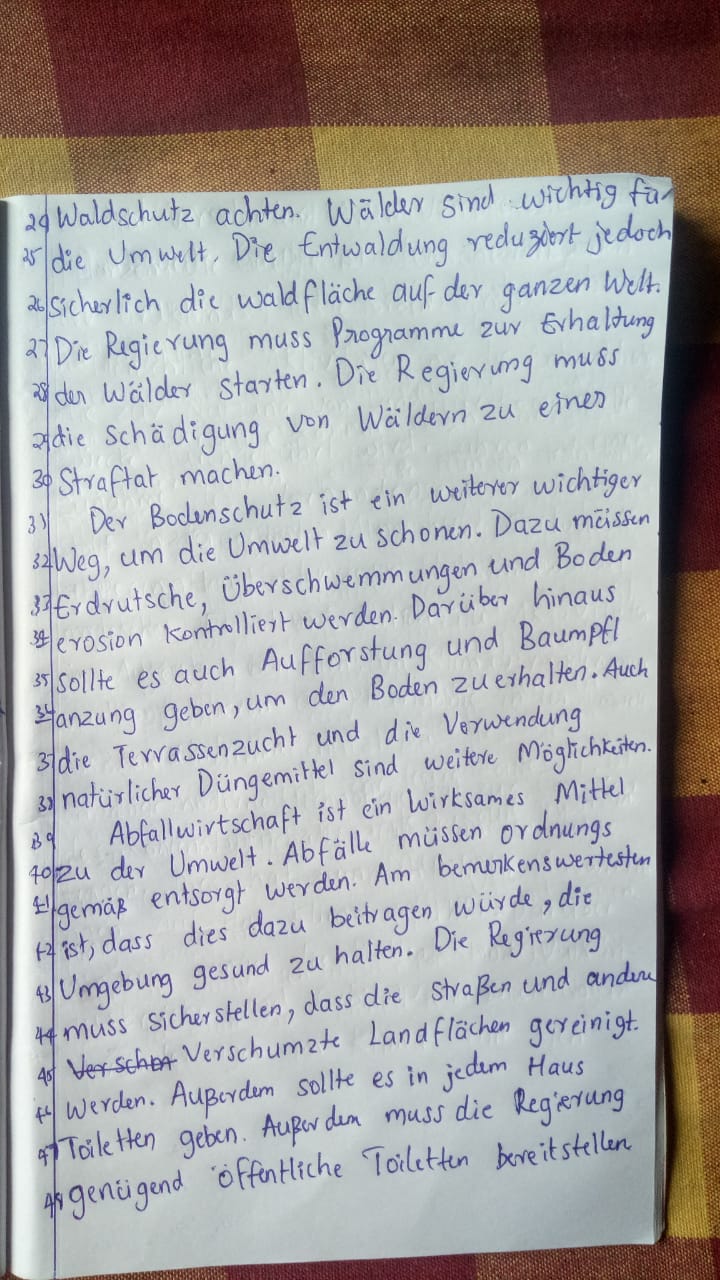 24 Waldschutz achten. Wälder sind wichtig für
25 die Umwelt. Die Entwaldung reduziert jedoch
26 sicherlich die waldfläche auf der ganzen Welt.
27 Die Regierung muss Programme zur Erhaltung
28 der Wälder starten. Die Regierung muss
29 die Schädigung von Wäldern zu einer
30 Straftat machen.
31 Der Bodenschutz ist ein weiterer wichtiger
32 Weg, um die Umwelt zu schonen. Dazu müssen
33 Erdrutsche, Überschwemmungen und Boden
34 erosion kontrolliert werden. Darüber hinaus
35 sollte es auch Aufforstung und Baumpfl
36 anzung geben, um den Boden zu erhalten. Auch
37 die Terrassenzucht und die Verwendung
38 natürlicher Düngemittel sind weitere Möglichkeiten.
39 Abfallwirtschaft ist ein wirksames Mittel
40 zu der Umwelt. Abfälle müssen ordnungs
41 gemäß entsorgt werden. Am bemerkenswertesten
42 ist, dass dies dazu beitragen würde, die
43 Umgebung gesund zu halten. Die Regierung
44 muss sicherstellen, dass die straßen und andere
45 Verschumzte Landflächen gereinigt.
46 werden. Außerdem sollte es in jedem Haus
47 Toiletten geben. Außerdem muss die Regierung
48 genügend öffentliche Toiletten bereitstellen